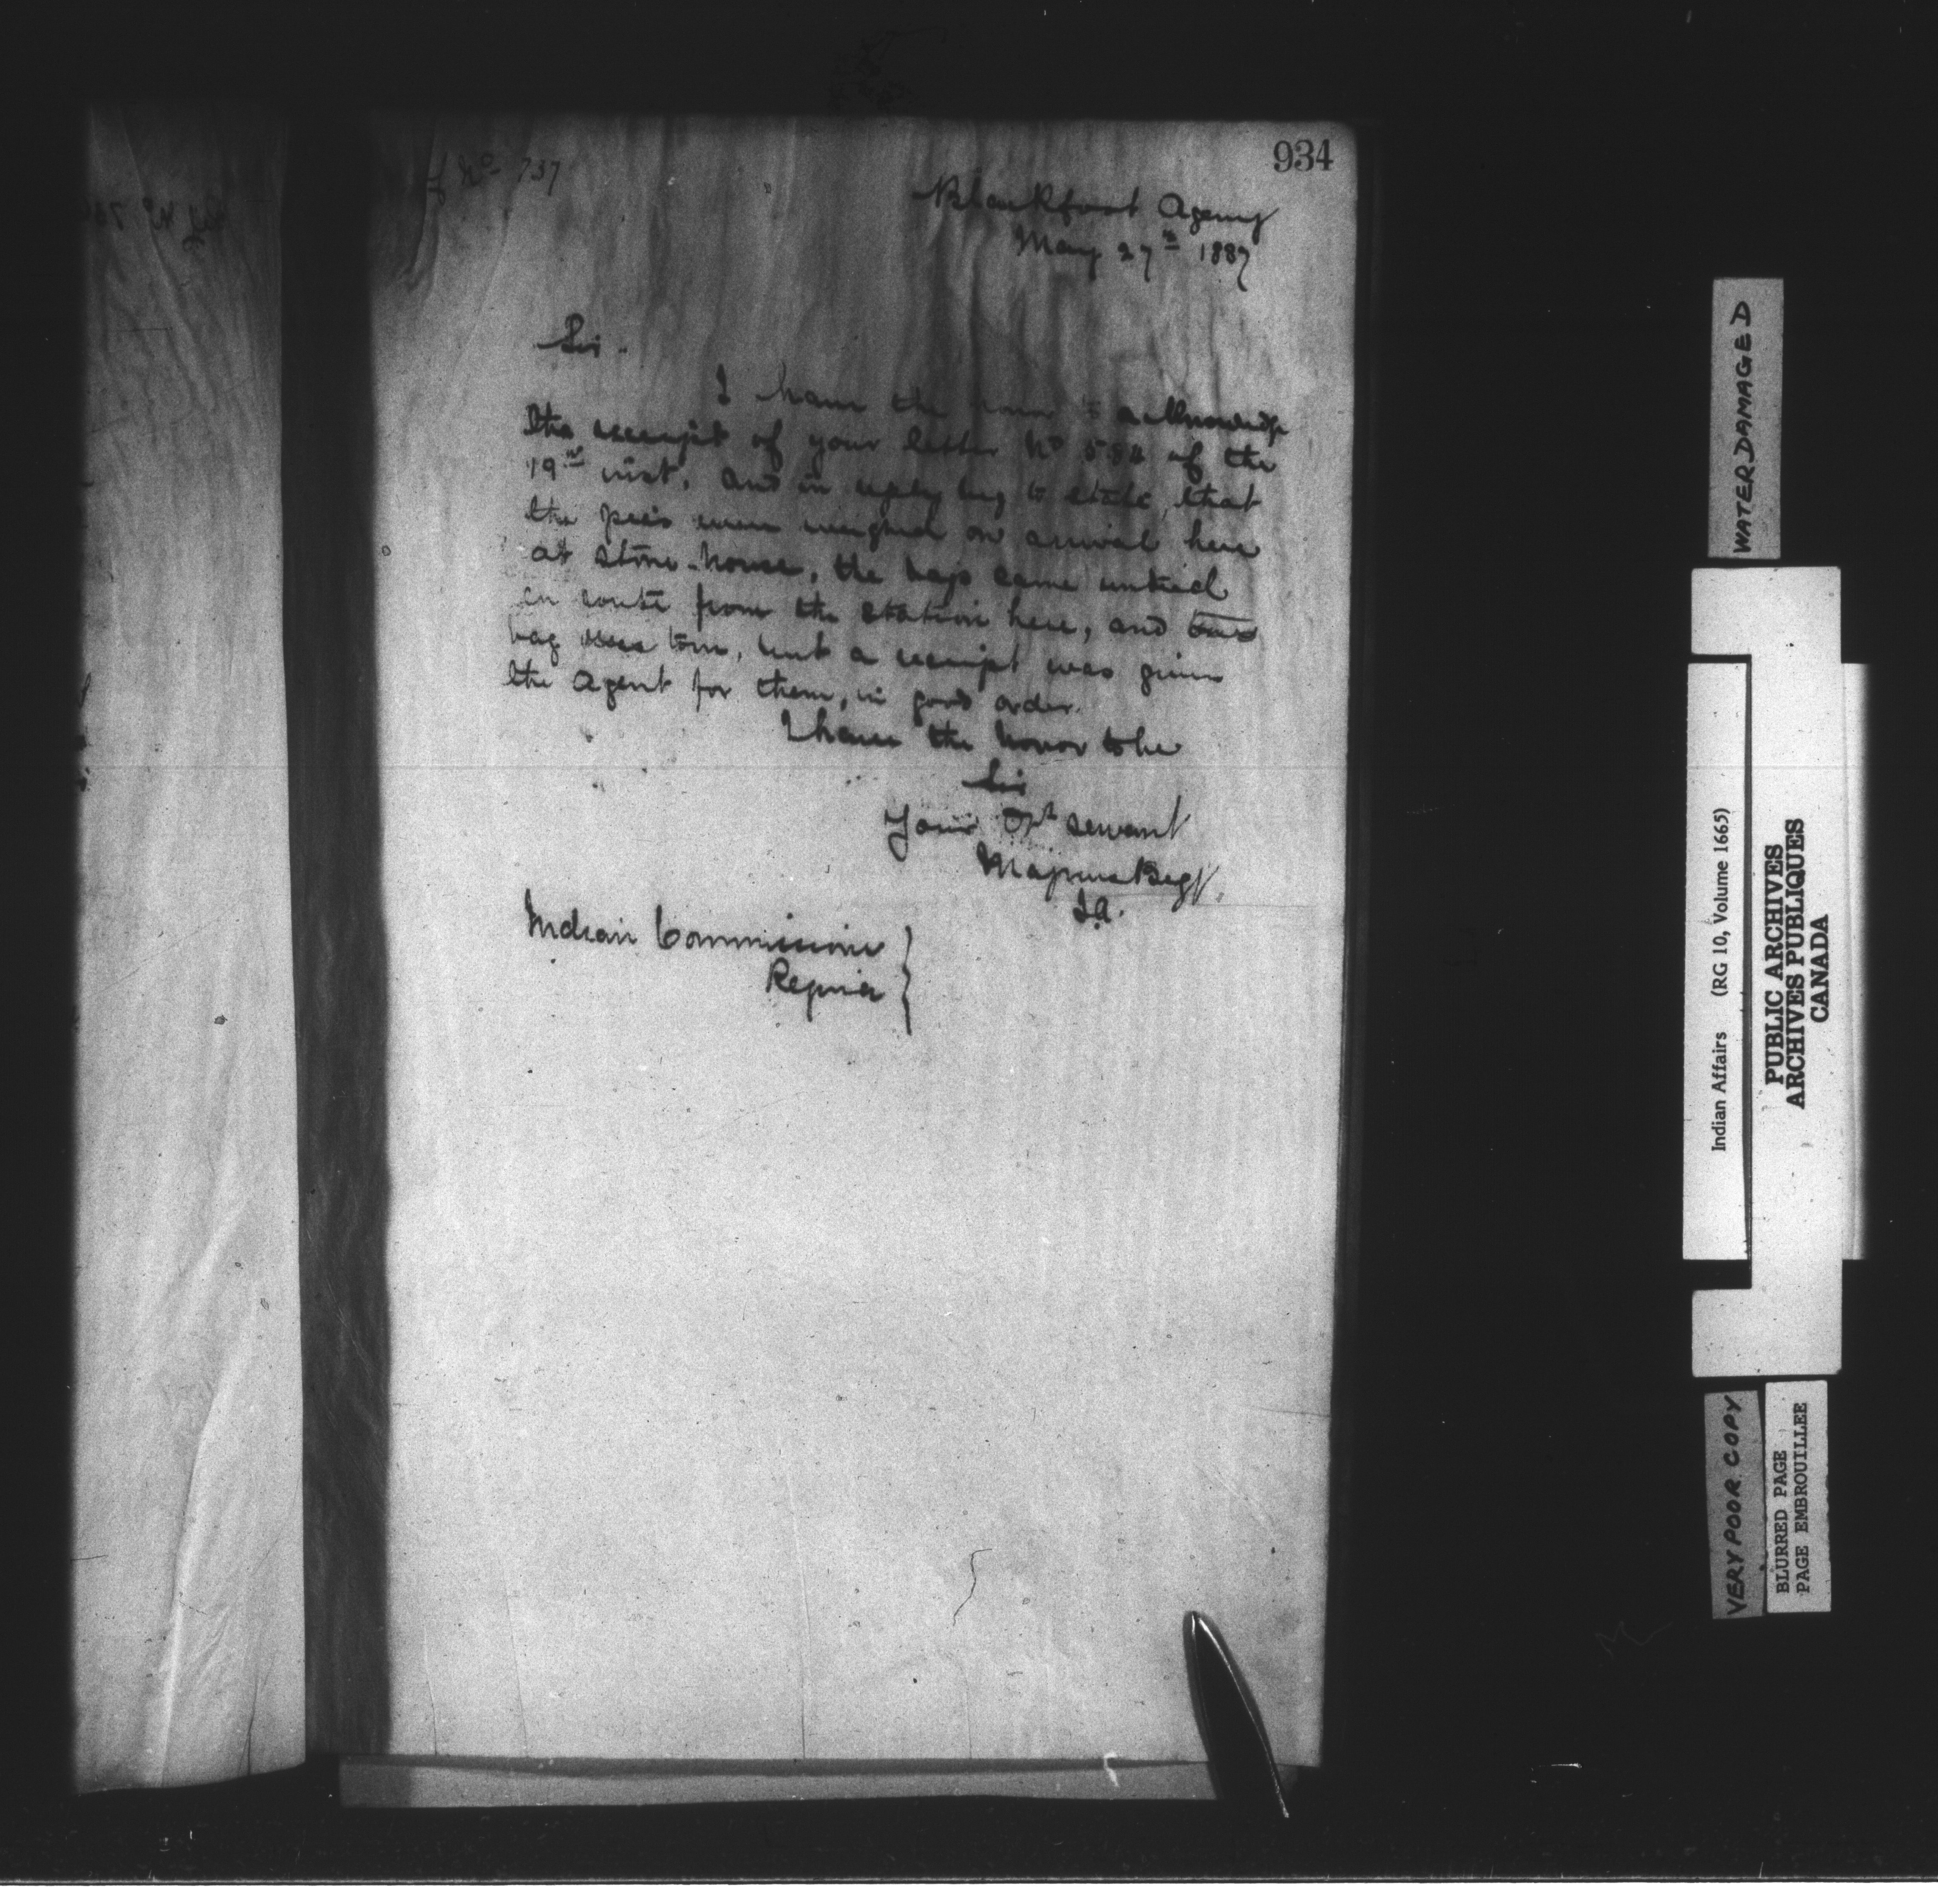 934
f No 737
Blackfoot Agency
May 27th 1887
Sir.
I have the honor to acknowledge
the receipt of your letter No of the
19th inst. and in reply beg to state, that
the peas were weighed on arrival here
at store-house, the bags came untied
en route from the station here, and
bag was torn, but a receipt was given
the Agent for them, in good order.
I have the honor to be
Sir
Your Obt servant
Magnus Begg
I.A.
Indian Commissioner
Regina
WATERDAMAGED
Indian Affairs (RG 10, Volume 1665)
PUBLIC ARCHIVES
ARCHIVES PUBLIQUES
CANADA
VERY POOR COPY
BLURRED PAGE
PAGE EMBROUILLEE